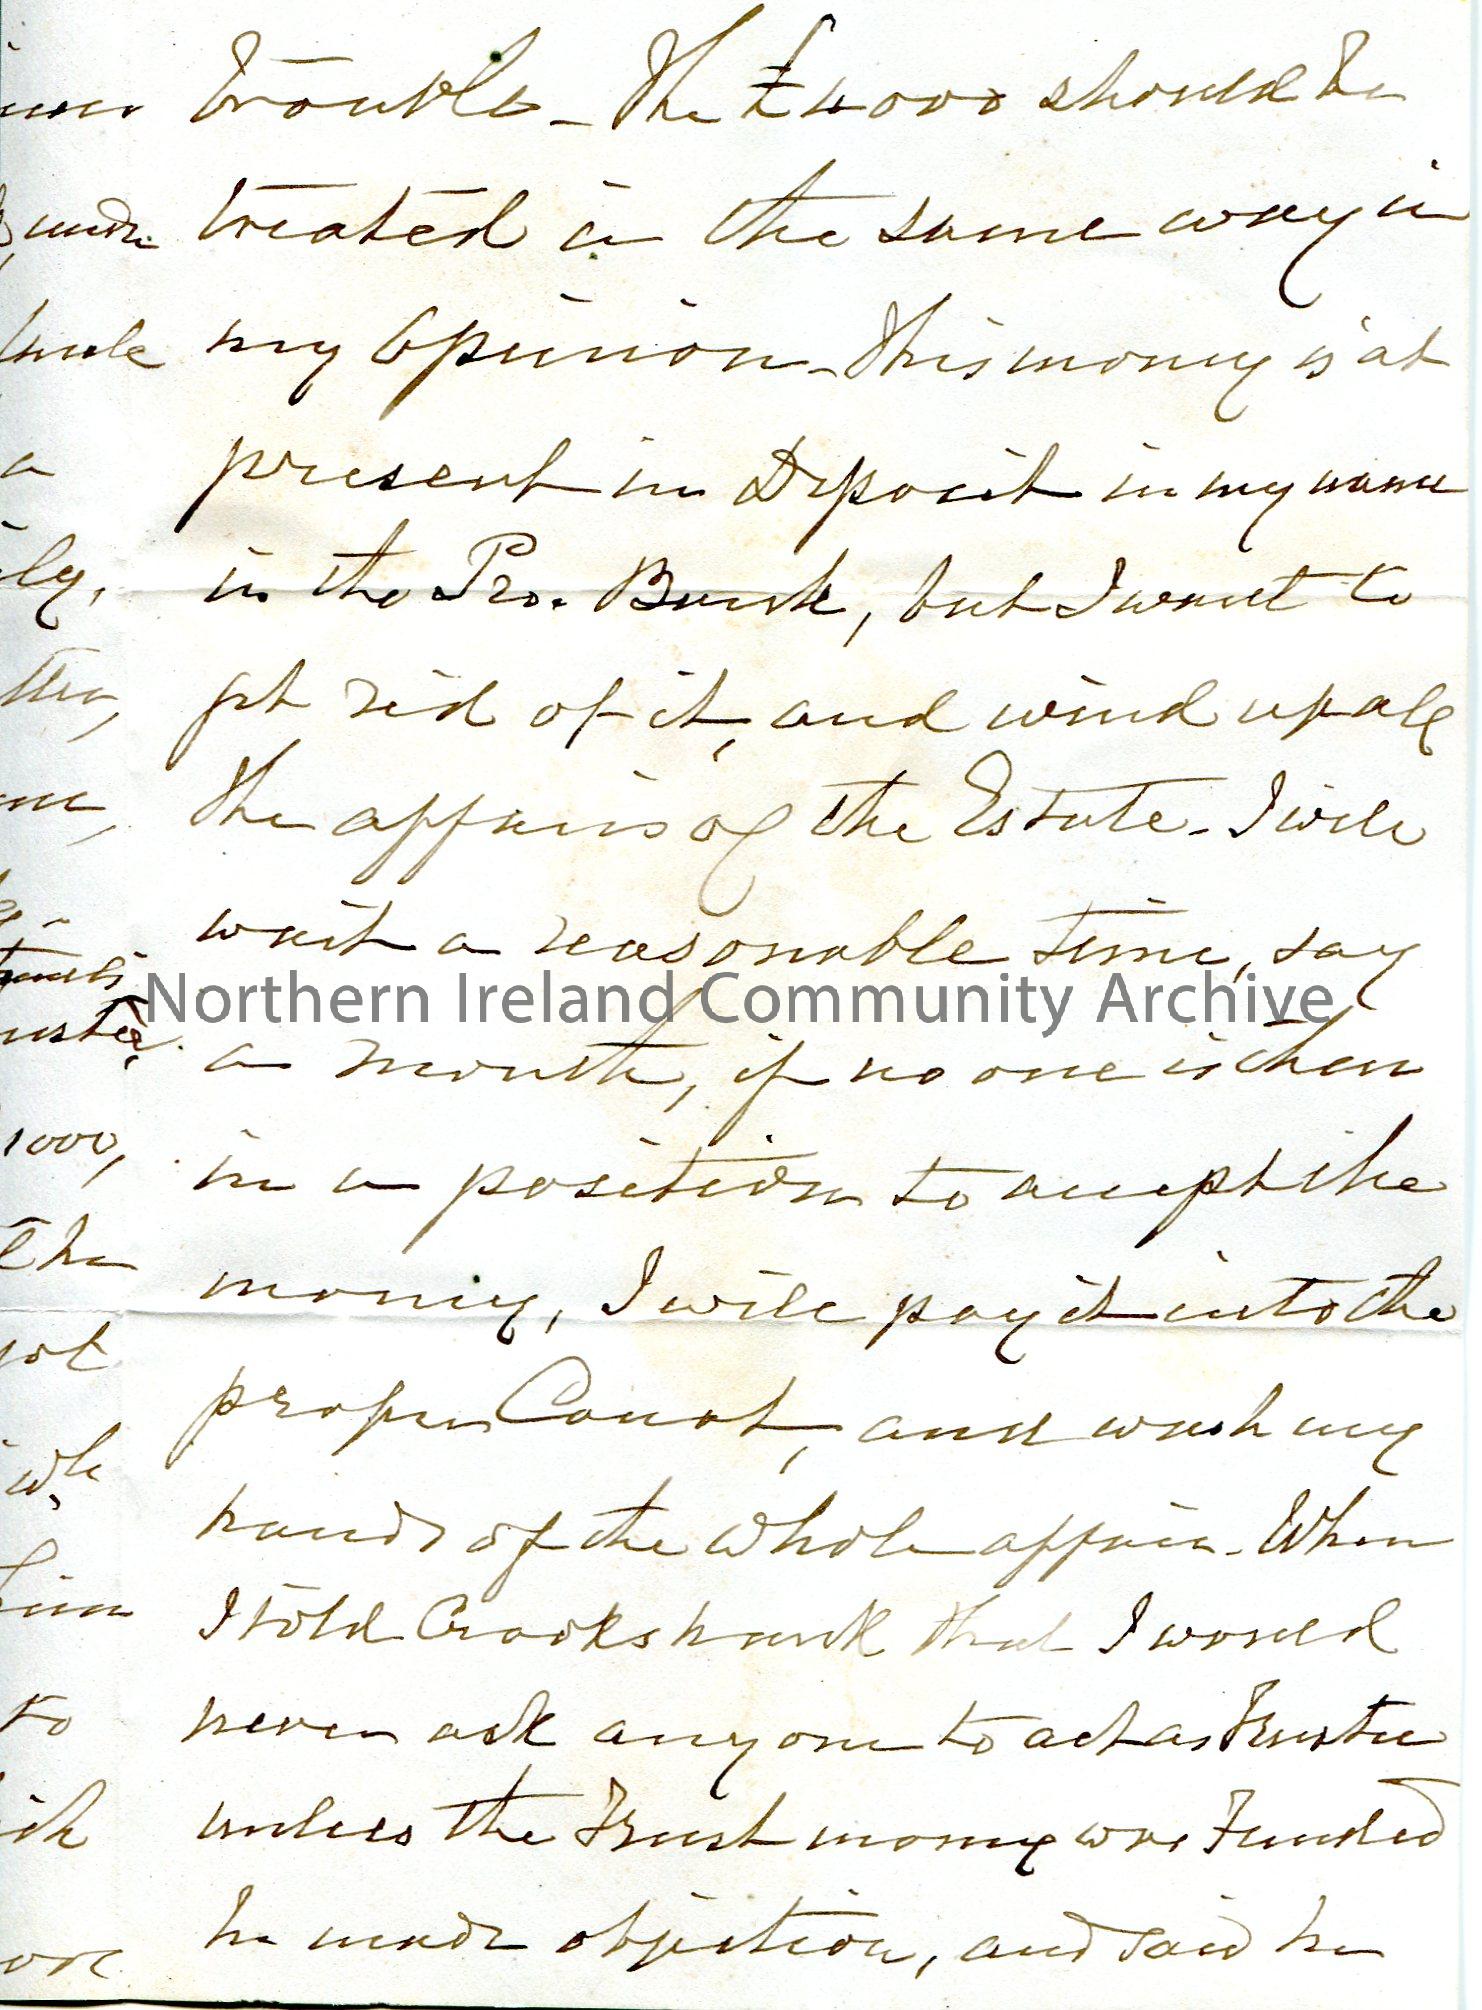 trouble – The £4000 should be
treated in the same way in
my Opinion – This money is at
present in Deposit in my name
in the Pro. Bank, but I want to
get rid of it, and wind up all
the affairs of the Estate – I will
wait a reasonable time, say
Northern Ireland Community Archive
a month, if no one is then
in a position to accept the
money, I will pay it into the
proper Court, and wash my
hands of the whole affair – When
I told Crookshank that I would
never ask anyone to act as Trustee
unless the Trust money was Funded
he made objection, and said he
made
ily,
1000,
the
not
him
to